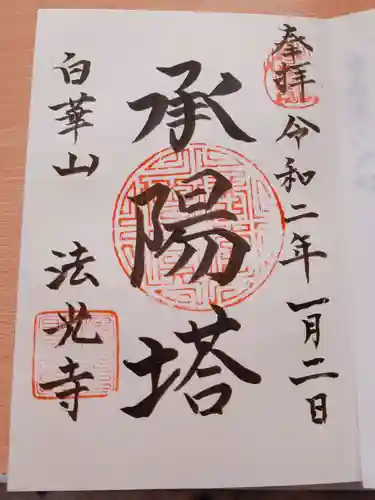 奉拝
令和二年一月二日
承陽塔
白華山
法光寺